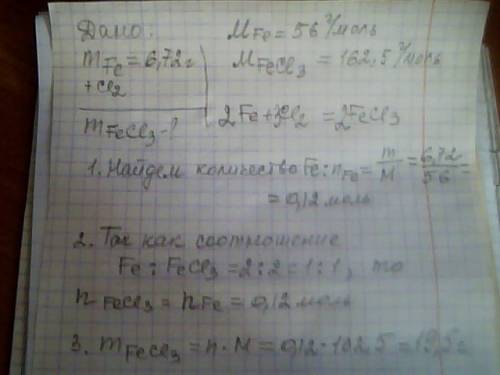 Дано:
m Fe = 6,72 г
+ Cl2
m FeCl3 - ?
M Fe = 56 г/моль
M FeCl3 = 162,5 г/моль
2Fe + 3Cl2 = 2FeCl3
1. Найдем количество Fe: n Fe = m/M = 6,72/56 =
= 0,12 моль
2. Так как соотношение
Fe : FeCl3 = 2 : 2 = 1 : 1, то
n FeCl3 = n Fe = 0,12 моль
3. m FeCl3 = n · M = 0,12 · 162,5 = 19,5 г